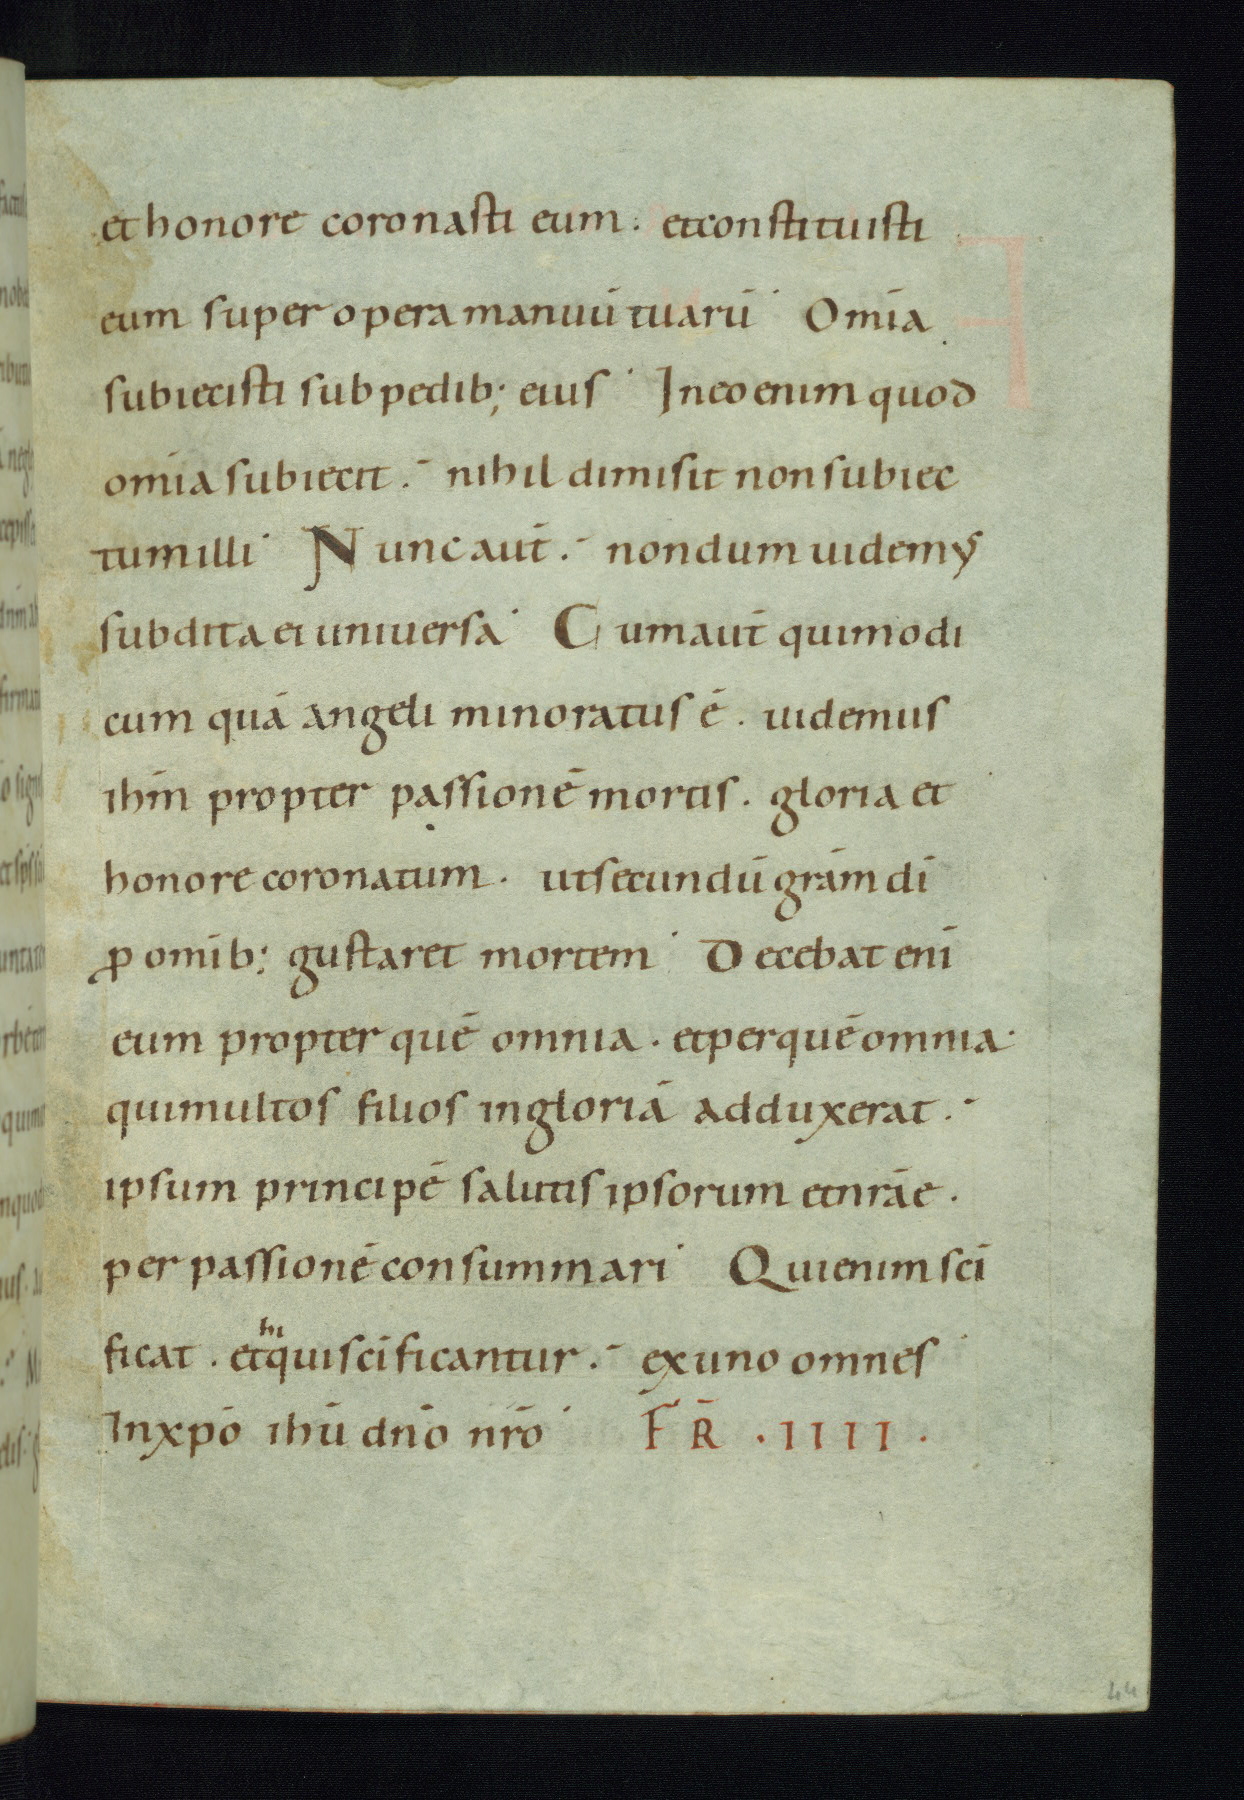 et honore coronasti eum. et constituisti
eum super opera manuū tuarū Omīa
subiecisti sub pedib; eius In eo enim quod
omīa subiecit. nihil dimisit non subiec
tum illi Nunc aut̄. nondum uidemꝰ
subdita ei uniuersa Cum aut̄ qui modi
cum quā angeli minoratus ē. uidemus
ihm̄ propter passionē mortis. gloria et
honore coronatum. ut secundū grām dī
ꝓ omīb; gustaret mortem Decebat enī
eum propter quē omnia. et per quē omnia.
qui multos filios in gloriā adduxerat.
ipsum principē salutis ipsorum et nrāe.
per passionē consummari Qui enim scī
ficat. et qui scīficantur. ex uno omnes
hi
In xpō ihū dnō nrō FR̄ .IIII.
44